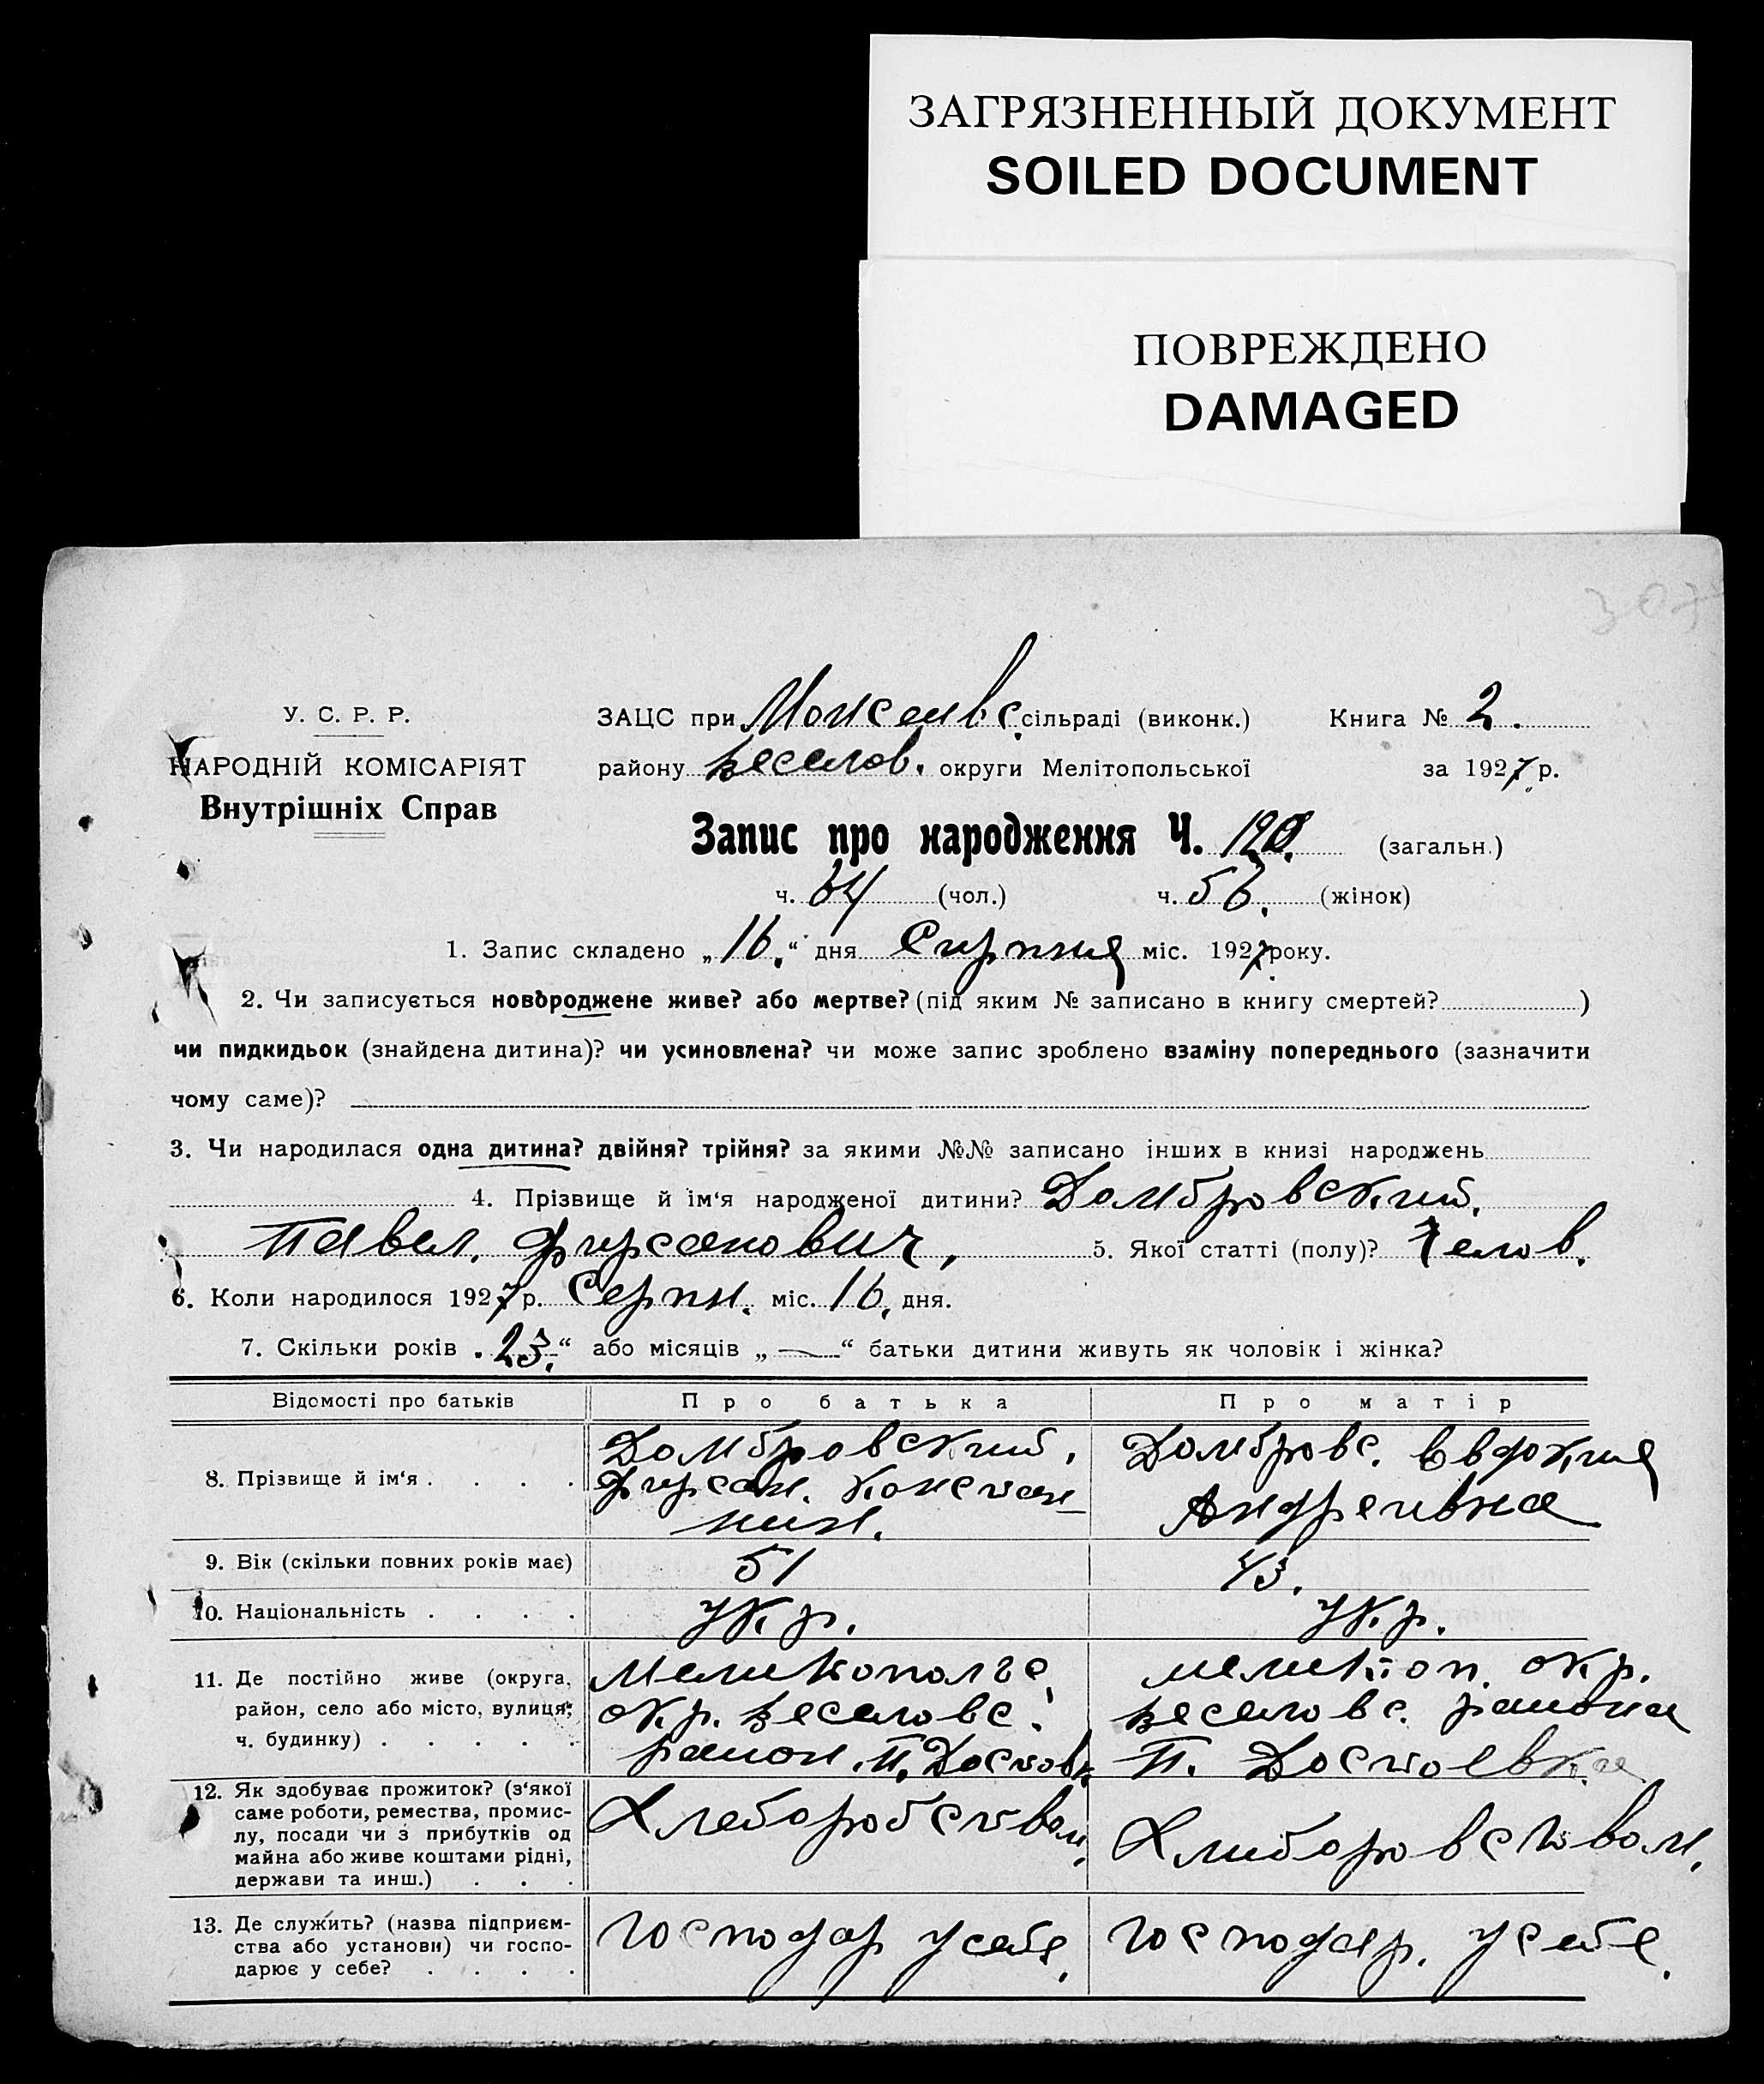 ЗАГРЯЗНЕННЫЙ ДОКУМЕНТ
SOILED DOCUMENT
ПОВРЕЖДЕНО
DAMAGED
307
У. С. Р. Р.
НАРОДНІЙ КОМІСАРІЯТ
Внутрішніх Справ
ЗАЦС при сільраді (виконк.) Книга № 2.
району Веселов. округи Мелітопольської за 1927 р.
Запис про народження Ч. 120. (загальн.)
ч. 64 (чол.) ч. 56. (жінок)
1. Запис складено „16.“ дня Сирпня міс. 1927 року.
2. Чи записується новороджене живе? або мертве? (під яким № записано в книгу смертей? )
чи пидкидьок (знайдена дитина)? чи усиновлена? чи може запис зроблено взаміну попереднього (зазначити
чому саме)?
3. Чи народилася одна дитина? двійня? трійня? за якими №№ записано інших в книзі народжень
4. Прізвище й ім‘я народженої дитини? Домбровский.
Павел. Фирсанович, 5. Якої статті (полу)? Челов.
6. Коли народилося 1927 р. Серпн. міс. 16. дня.
7. Скільки років „23.“ або місяців „—“ батьки дитини живуть як чоловік і жінка?
Відомості про батьків Про батька Про матір
8. Прізвище й ім‘я . . . . Домбровский. Домбровс. Евдокия
Фирсан. Констан- Андреивна
тин.
9. Вік (скільки повних років має) 51 43.
10. Національність . . . . Укр. Укр.
11. Де постійно живе (округа, Мелитопольс. мелитоп. окр.
район, село або місто, вулиця, окр. Веселовс. Веселовс. района
ч. будинку) . . . . . район. П. Достоевк П. Достоевка
12. Як здобуває прожиток? (з‘якої
саме роботи, ремества, промис-
лу, посади чи з прибутків од Хлеборобством. Хлиборовством.
майна або живе коштами рідні,
держави та инш.) . . .
13. Де служить? (назва підприєм- Господар усебе. Господар. усебе.
ства або установи) чи госпо-
дарює у себе? . . . .